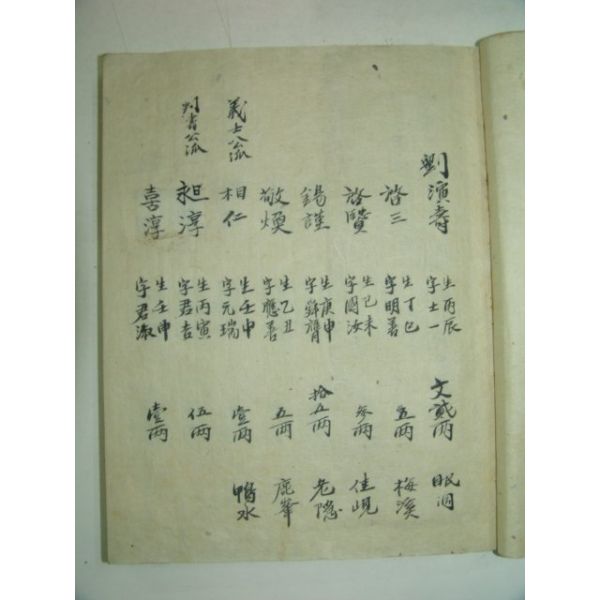 劉演壽 生丙辰 字士一 文貳兩 眠洞
啓三 生丁巳 字明善 五兩 梅溪
啓贊 生己未 字國汝 叄兩 佳峴
錫謹 生庚申 字 拾五兩 老隱
敬煥 生乙丑 字應善 五兩 鹿峯
義士公派
相仁 生壬申 字元瑞 壹兩 鴨水
判書公派
昶淳 生丙寅 字君吉 伍兩
喜淳 生壬申 字君淑 壹兩